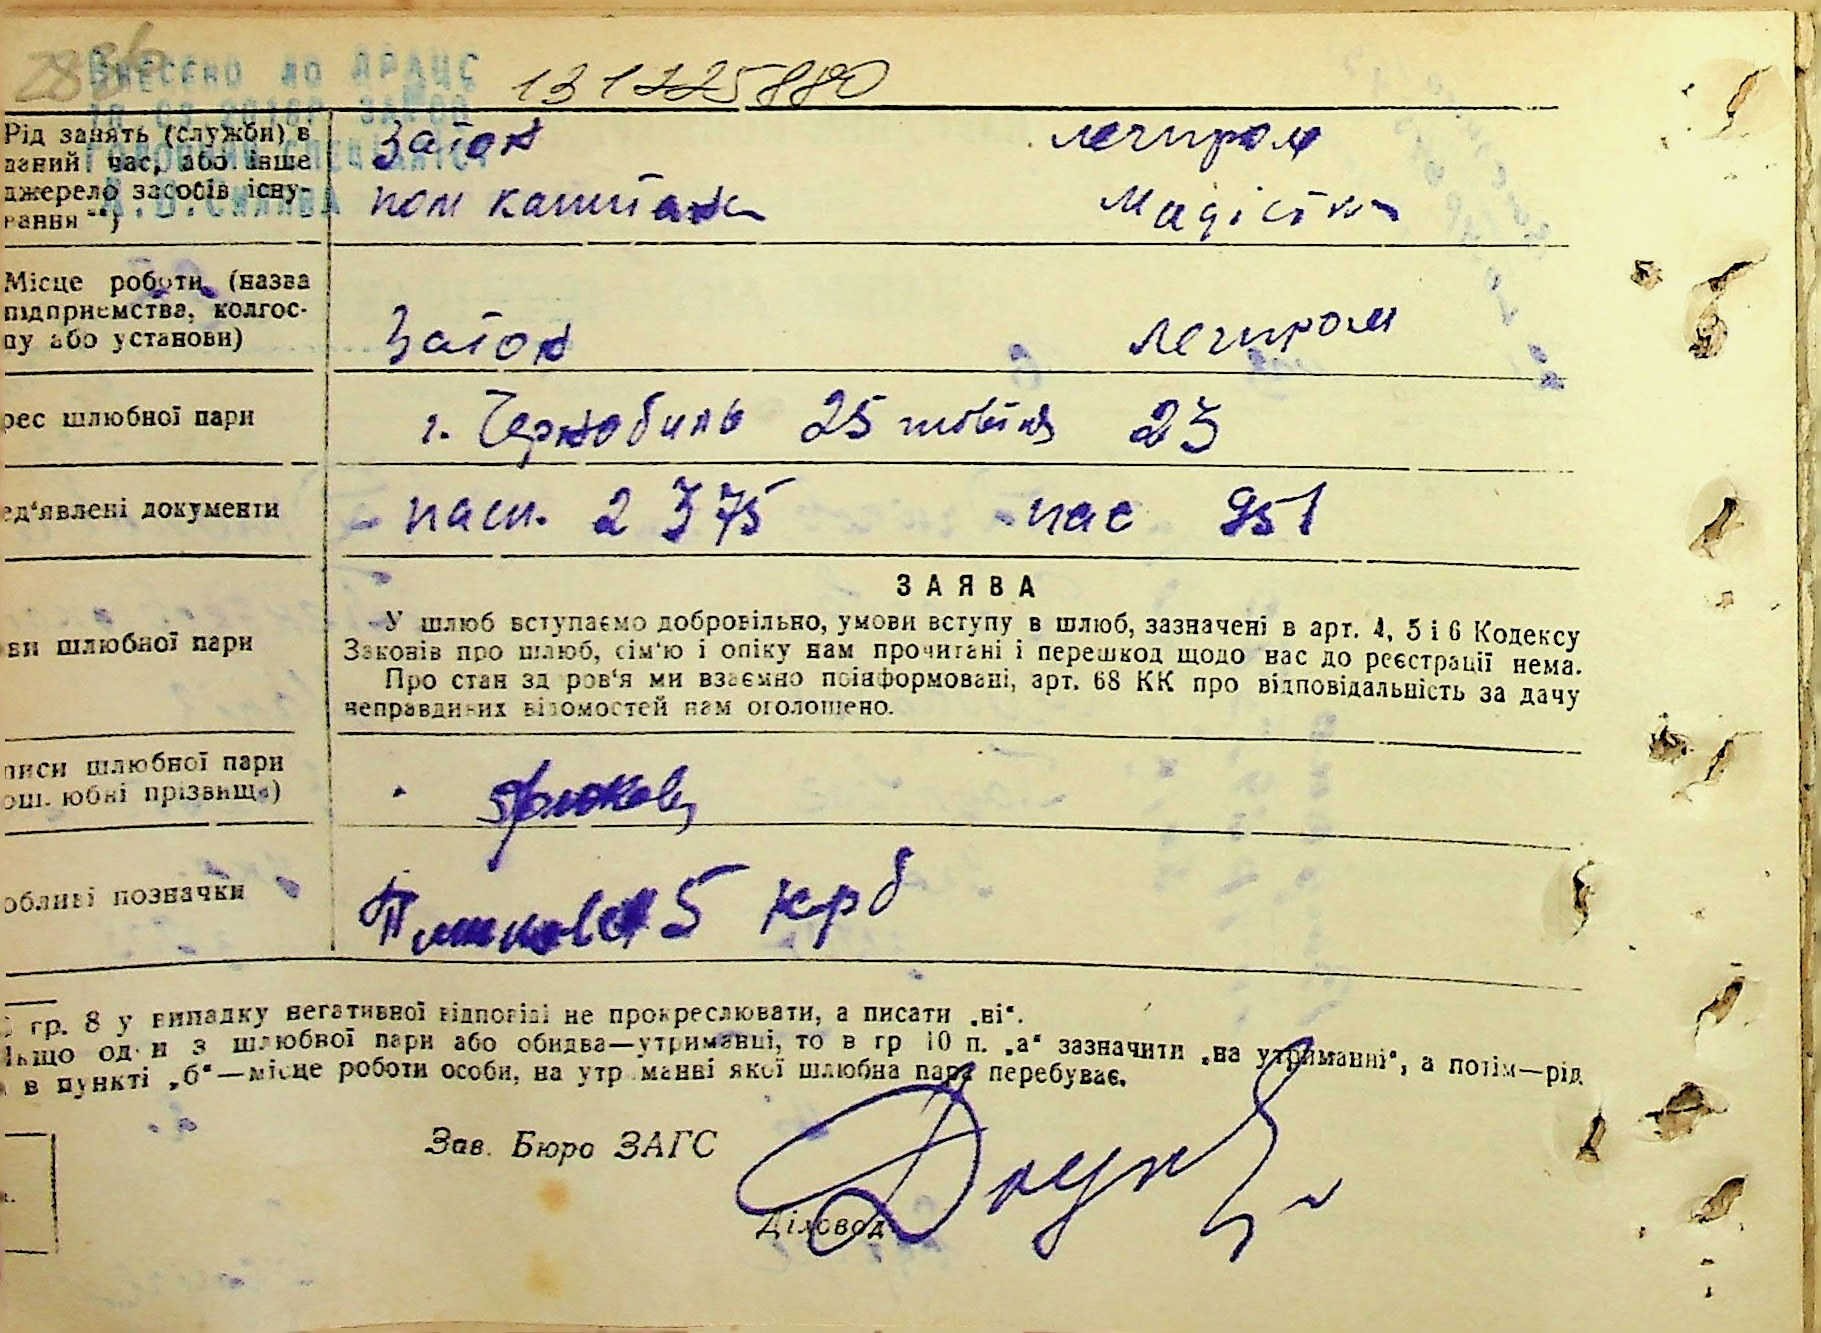 ВНЕСЕНО до ДРАЦС
131225880
Рід занять (служби) в даний час, або інше джерело засобів існування **)
Затон легпром
пом капитана Магістин
Місце роботи (назва підприємства, колгоспу або установи)
Затон Легпром
рес шлюбної пари
г. Чернобиль 25 жовтня 23
ед'явлені документи
пасп. 2 375 пас 951
ЗАЯВА
ви шлюбної пари
У шлюб вступаємо добровільно, умови вступу в шлюб, зазначені в арт. 4, 5 і 6 Кодексу
Законів про шлюб, сім'ю і опіку нам прочитані і перешкод щодо нас до реєстрації нема.
Про стан здоров'я ми взаємно поінформовані, арт. 68 КК про відповідальність за дачу
неправдивих відомостей нам оголошено.
писи шлюбної пари
ошлюбні прізвища)
обливі позначки
5 крб
гр. 8 у випадку негативної відповіді не прокреслювати, а писати „ні“.
Якщо один з шлюбної пари або обидва—утриманці, то в гр 10 п. „а“ зазначити „на утриманні“, а потім—рід
в пункті „б“—місце роботи особи, на утриманні якої шлюбна пара перебуває.
Зав. Бюро ЗАГС
Діловод